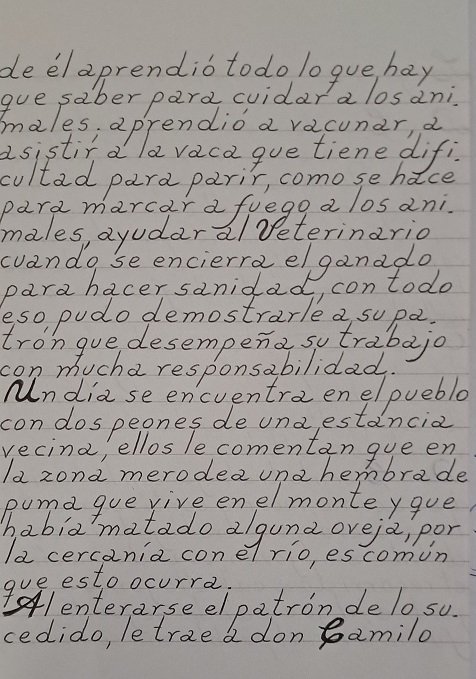 de él aprendió todo lo que hay
que saber para cuidar a los ani.
males, aprendió a vacunar, a
asistir a la vaca que tiene difi.
cultad para parir, como se hace
para marcar a fuego a los ani.
males, ayudar al Veterinario
cuando se encierra el ganado
para hacer sanidad, con todo
eso pudo demostrarle a su pa.
trón que desempeña su trabajo
con mucha responsabilidad.
Un día se encuentra en el pueblo
con dos peones de una estancia
vecina, ellos le comentan que en
la zona merodea una hembra de
puma que vive en el monte y que
había matado alguna oveja, por
la cercanía con el río, es común
que esto ocurra.
Al enterarse el patrón de lo su.
cedido, le trae a don Camilo